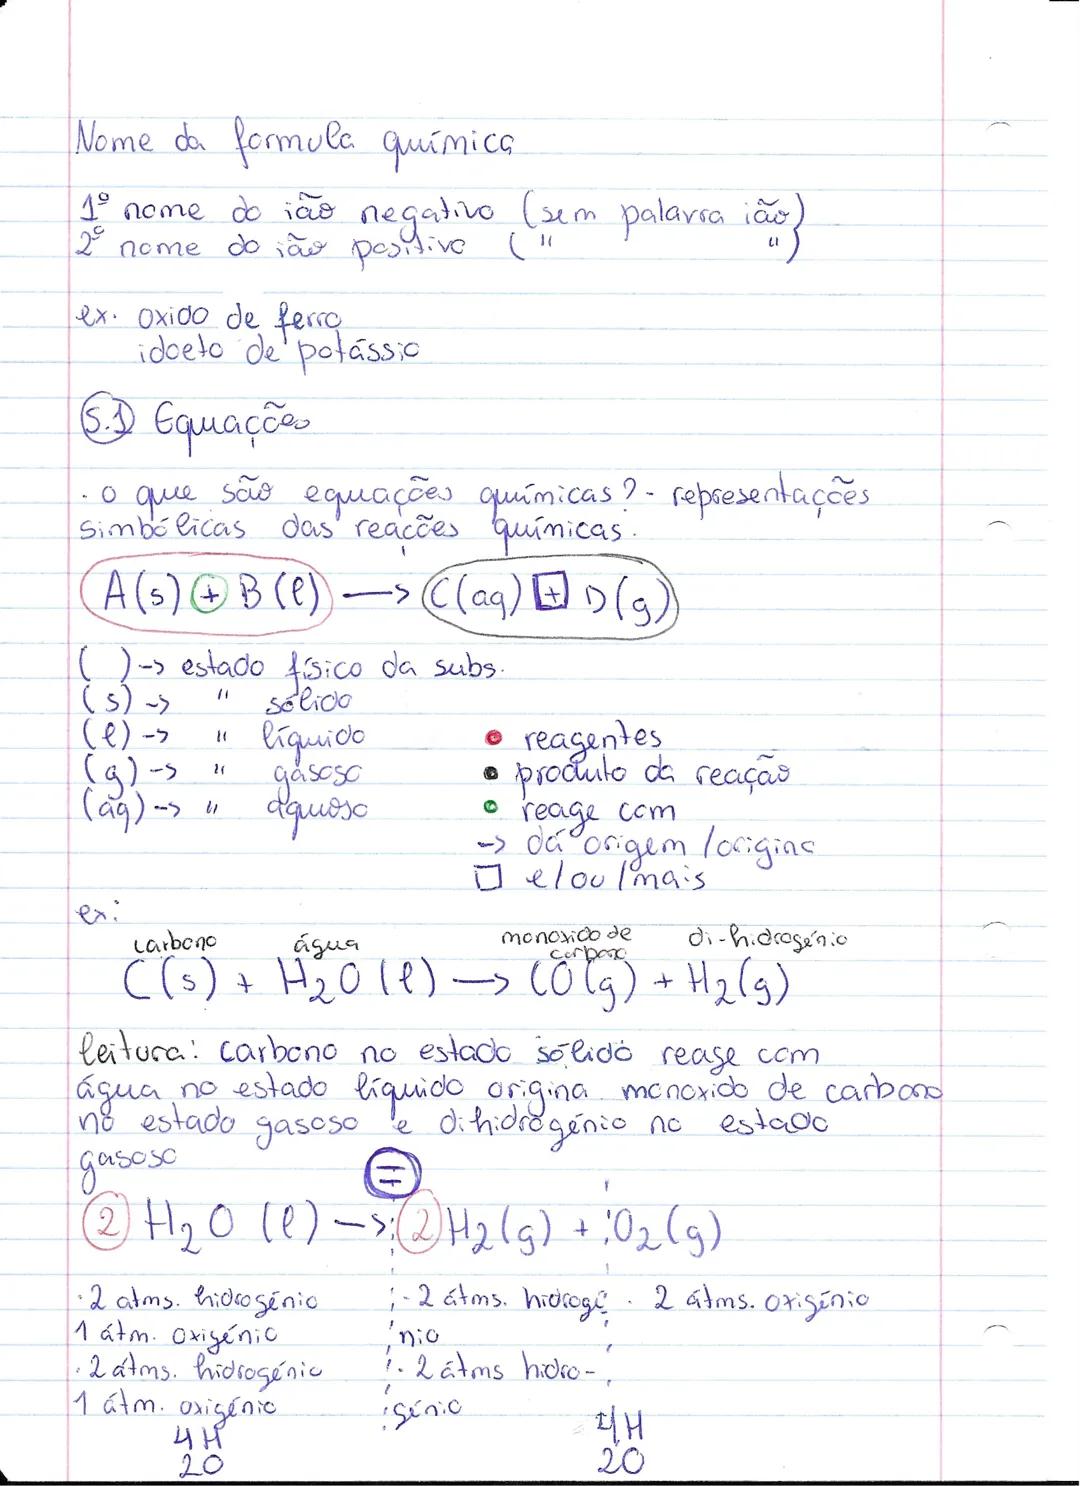 Nome da formula química
1º nome do ião negativo (sem palavra ião)
2º nome do ião positivo ( " " )
ex. oxido de ferro
idoeto de potássio
5.1 Equações
. o que são equações químicas? - representações
simbólicas das reacções químicas.
A(s) + B(l) —> C(aq) + D(g)
( ) -> estado físico da subs.
(s) -> " sólido
(l) -> " líquido
(g) -> " gasoso
(aq) -> " aquoso
• reagentes
• produto da reação
• reage com
-> dá origem / origina
□ e/ou/mais
ex:
carbono água monoxido de carbono di-hidrogénio
C(s) + H₂O(l) —> CO(g) + H₂(g)
leitura: carbono no estado sólido reage com
água no estado líquido origina monoxido de carbono
no estado gasoso e dihidrogénio no estado
gasoso
=
2 H₂O (l) —> 2 H₂(g) + O₂(g)
· 2 atms. hidrogénio · 2 átms. hidrogé · 2 átms. oxigénio
1 átm. oxigénio nio
· 2 átms. hidrogénio · 2 átms hidro-
1 átm. oxigénio génio
4H 4H
2O 2O